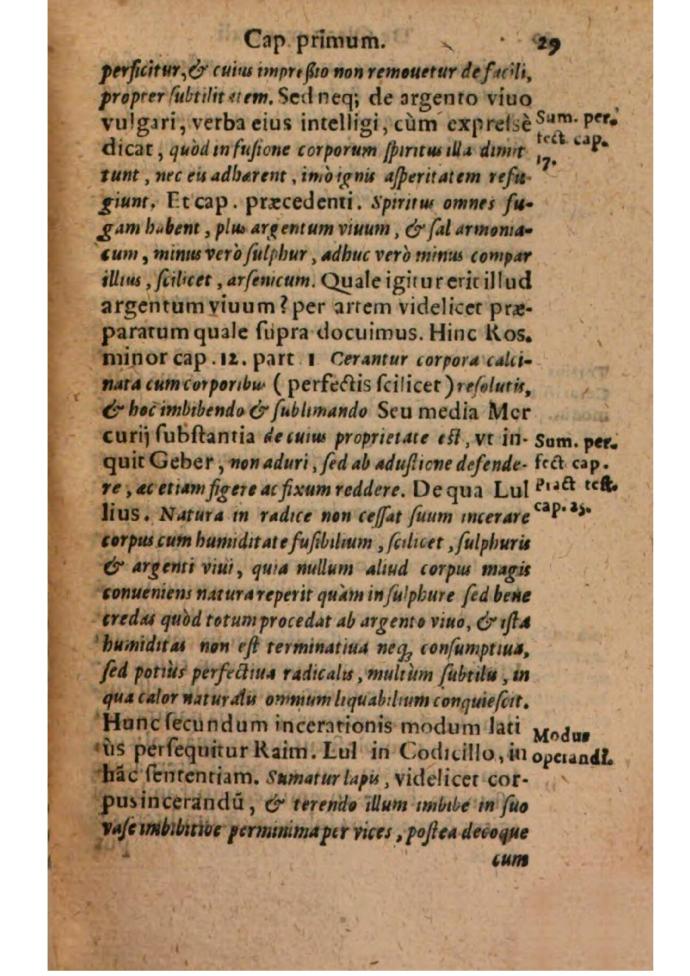 Cap. primum. 29
perficitur, & cuius impreßio non remouetur de facili,
propter subtilitatem. Sed neq; de argento viuo
vulgari, verba eius intelligi, cùm expressè
dicat, quòd in fusione corporum spiritus illa dimit
tunt, nec eis adhærent, imò ignis asperitatem refu-
giunt. Et cap. præcedenti. Spiritus omnes fu-
gam habent, plus argentum viuum, & sal armonia-
cum, minus verò sulphur, adhuc verò minus compar
illius, scilicet, arsenicum. Quale igitur erit illud
argentum viuum? per artem videlicet præ-
paratum quale supra docuimus. Hinc Ros.
minor cap. 12. part 1 Cerantur corpora calci-
nata cum corporibus (perfectis scilicet) resolutis,
& hoc imbibendo & sublimando Seu media Mer
curij substantia de cuius proprietate est, vt in-
quit Geber, non aduri, sed ab adustione defende-
re, ac etiam figere ac fixum reddere. De qua Lul
lius. Natura in radice non cessat suum incerare
corpus cum humiditate fusibilium, scilicet, sulphuris
& argenti viui, quia nullum aliud corpus magis
conueniens natura reperit quàm in sulphure sed bene
credas quòd totum procedat ab argento viuo, & ista
humiditas non est terminatiua neq; consumptiua,
sed potiùs perfectiua radicalis, multùm subtilis, in
qua calor naturalis omnium liquabilium conquiescit.
Hunc secundum incerationis modum lati
ùs persequitur Raim. Lul in Codicillo, in
hãc sententiam. Sumatur lapis, videlicet cor-
pus incerandũ, & terendo illum imbibe in suo
vase imbibitiue per minima per vices, postea decoque
cum
Sum. per.
fect cap.
17.
Sum. per.
fect cap.
Pract test.
cap. 25.
Modus
operandi.